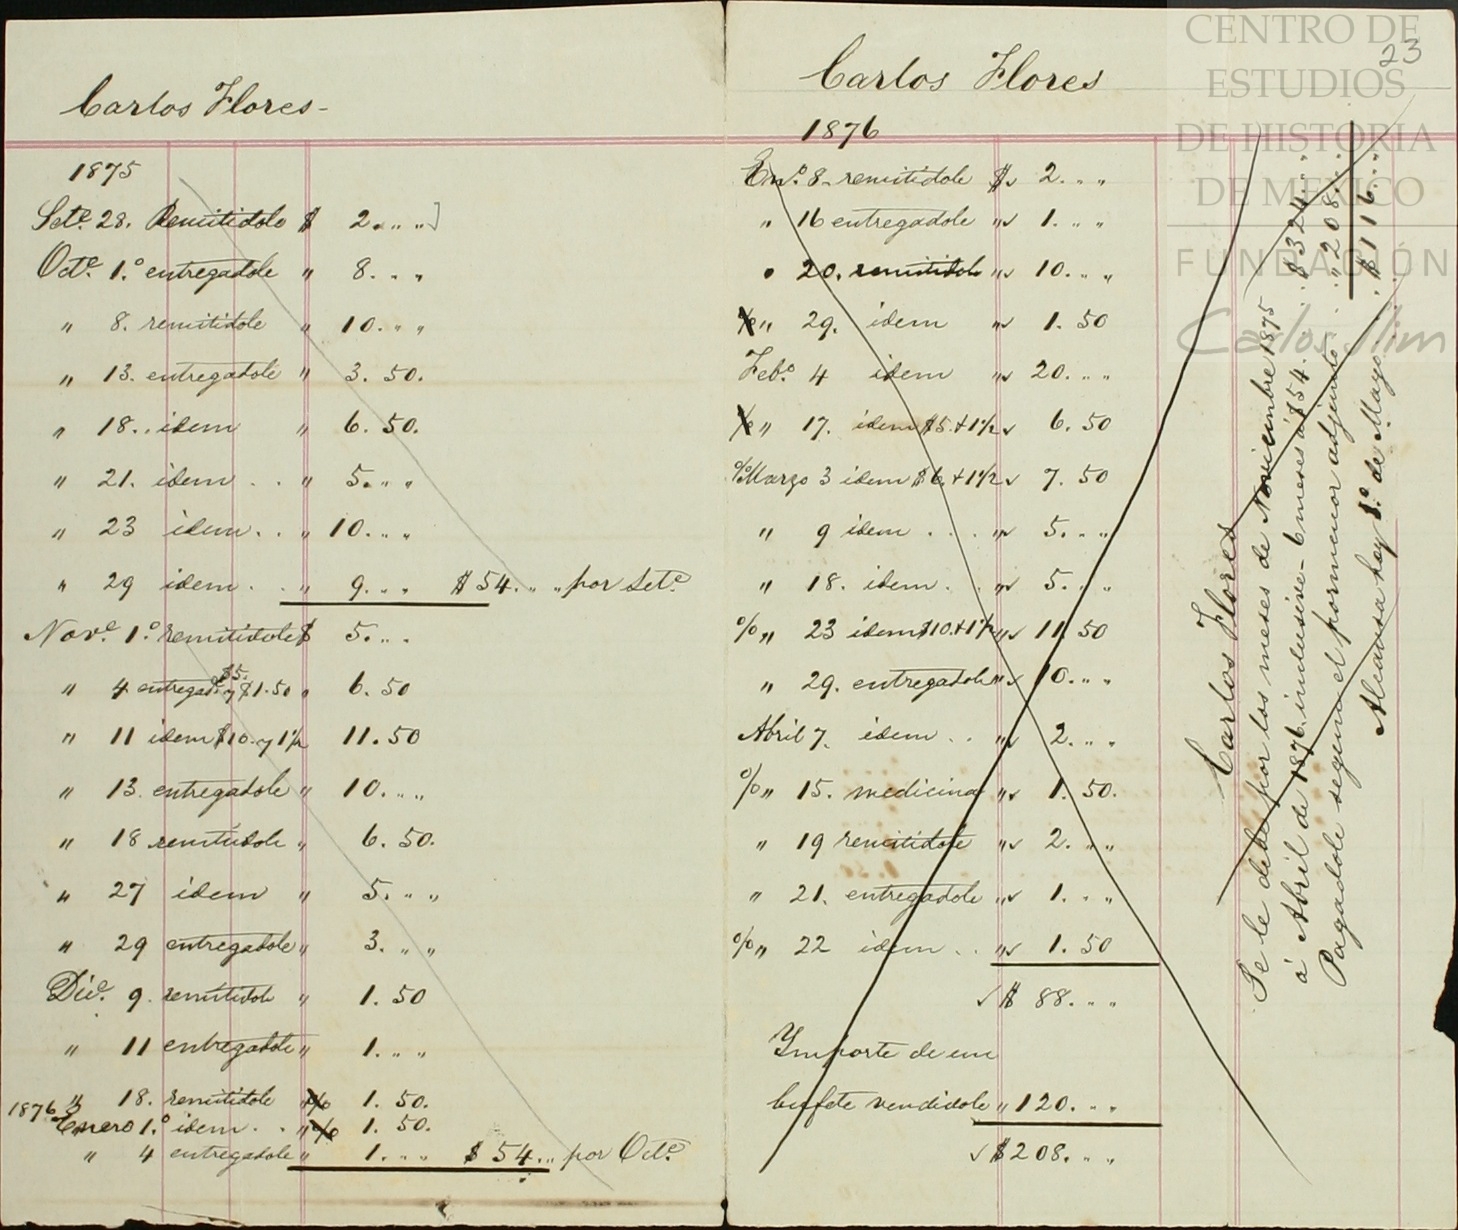 Carlos Flores-
1875
Sete. 28. Remitidole $ 2. „ „]
Octe. 1.º entregadole „ 8. „ „
„ 8. remitidole „ 10. „ „
„ 13. entregadole „ 3. 50.
„ 18. . idem „ 6. 50.
„ 21. idem . . „ 5. „ „
„ 23 idem . . „ 10. „ „
„ 29 idem . . „ 9. „ „ $ 54. „ „ por Sete.
Nove. 1.º remitidole $ 5. „ „
„ 4 entregadole $5. y $1.50 „ 6. 50
„ 11 idem $10. y 1½ 11. 50
„ 13. entregadole „ 10. „ „
„ 18 remitidole „ 6. 50.
„ 27 idem „ 5. „ „
„ 29 entregadole „ 3. „ „
Dice. 9. remitidole „ 1. 50
„ 11 entregadole „ 1. „ „
„ 18. remitidole 1. 50.
1876 Enero 1.º idem . . „ 1. 50.
„ 4 entregadole „ 1. „ „ $ 54. „ por Octe.
23
Carlos Flores
1876
Eno. 8- remitidole $ 2. „ „
„ 16 entregadole „ 1. „ „
„ 20. remitidole „ 10. „ „
„ 29. idem „ 1. 50
Febo. 4 idem „ 20. „ „
„ 17. idem $5. + 1½ 6. 50
% Marzo 3 idem $6. + 1½ 7. 50
„ 9 idem . . . „ 5. „ „
„ 18. idem . . „ 5. „ „
% „ 23 idem $10. + 1½ „ 11. 50
„ 29. entregadole „ 10. „ „
Abril 7. idem . . „ 2. „ „
% „ 15. medicina „ 1. 50.
„ 19 remitidole „ 2. „ „
„ 21. entregadole „ 1. „ „
% „ 22 idem . . „ 1. 50
✓ $ 88. „ „
Importe de un
bufete vendidole „ 120. „ „
✓ $ 208. „ „
Carlos Flores
Se le debe por los meses de Noviembre 1875
á Abril de 1876. inclusive - 6 meses á $54. . . $ 324 „ „
Pagadole segun el pormenor adjunto . . „ 208. „ „
Alcansa hoy 1.º de Mayo . . . $ 116. „ „
CENTRO DE
ESTUDIOS
DE HISTORIA
DE MEXICO
FUNDACIÓN
Carlos Slim